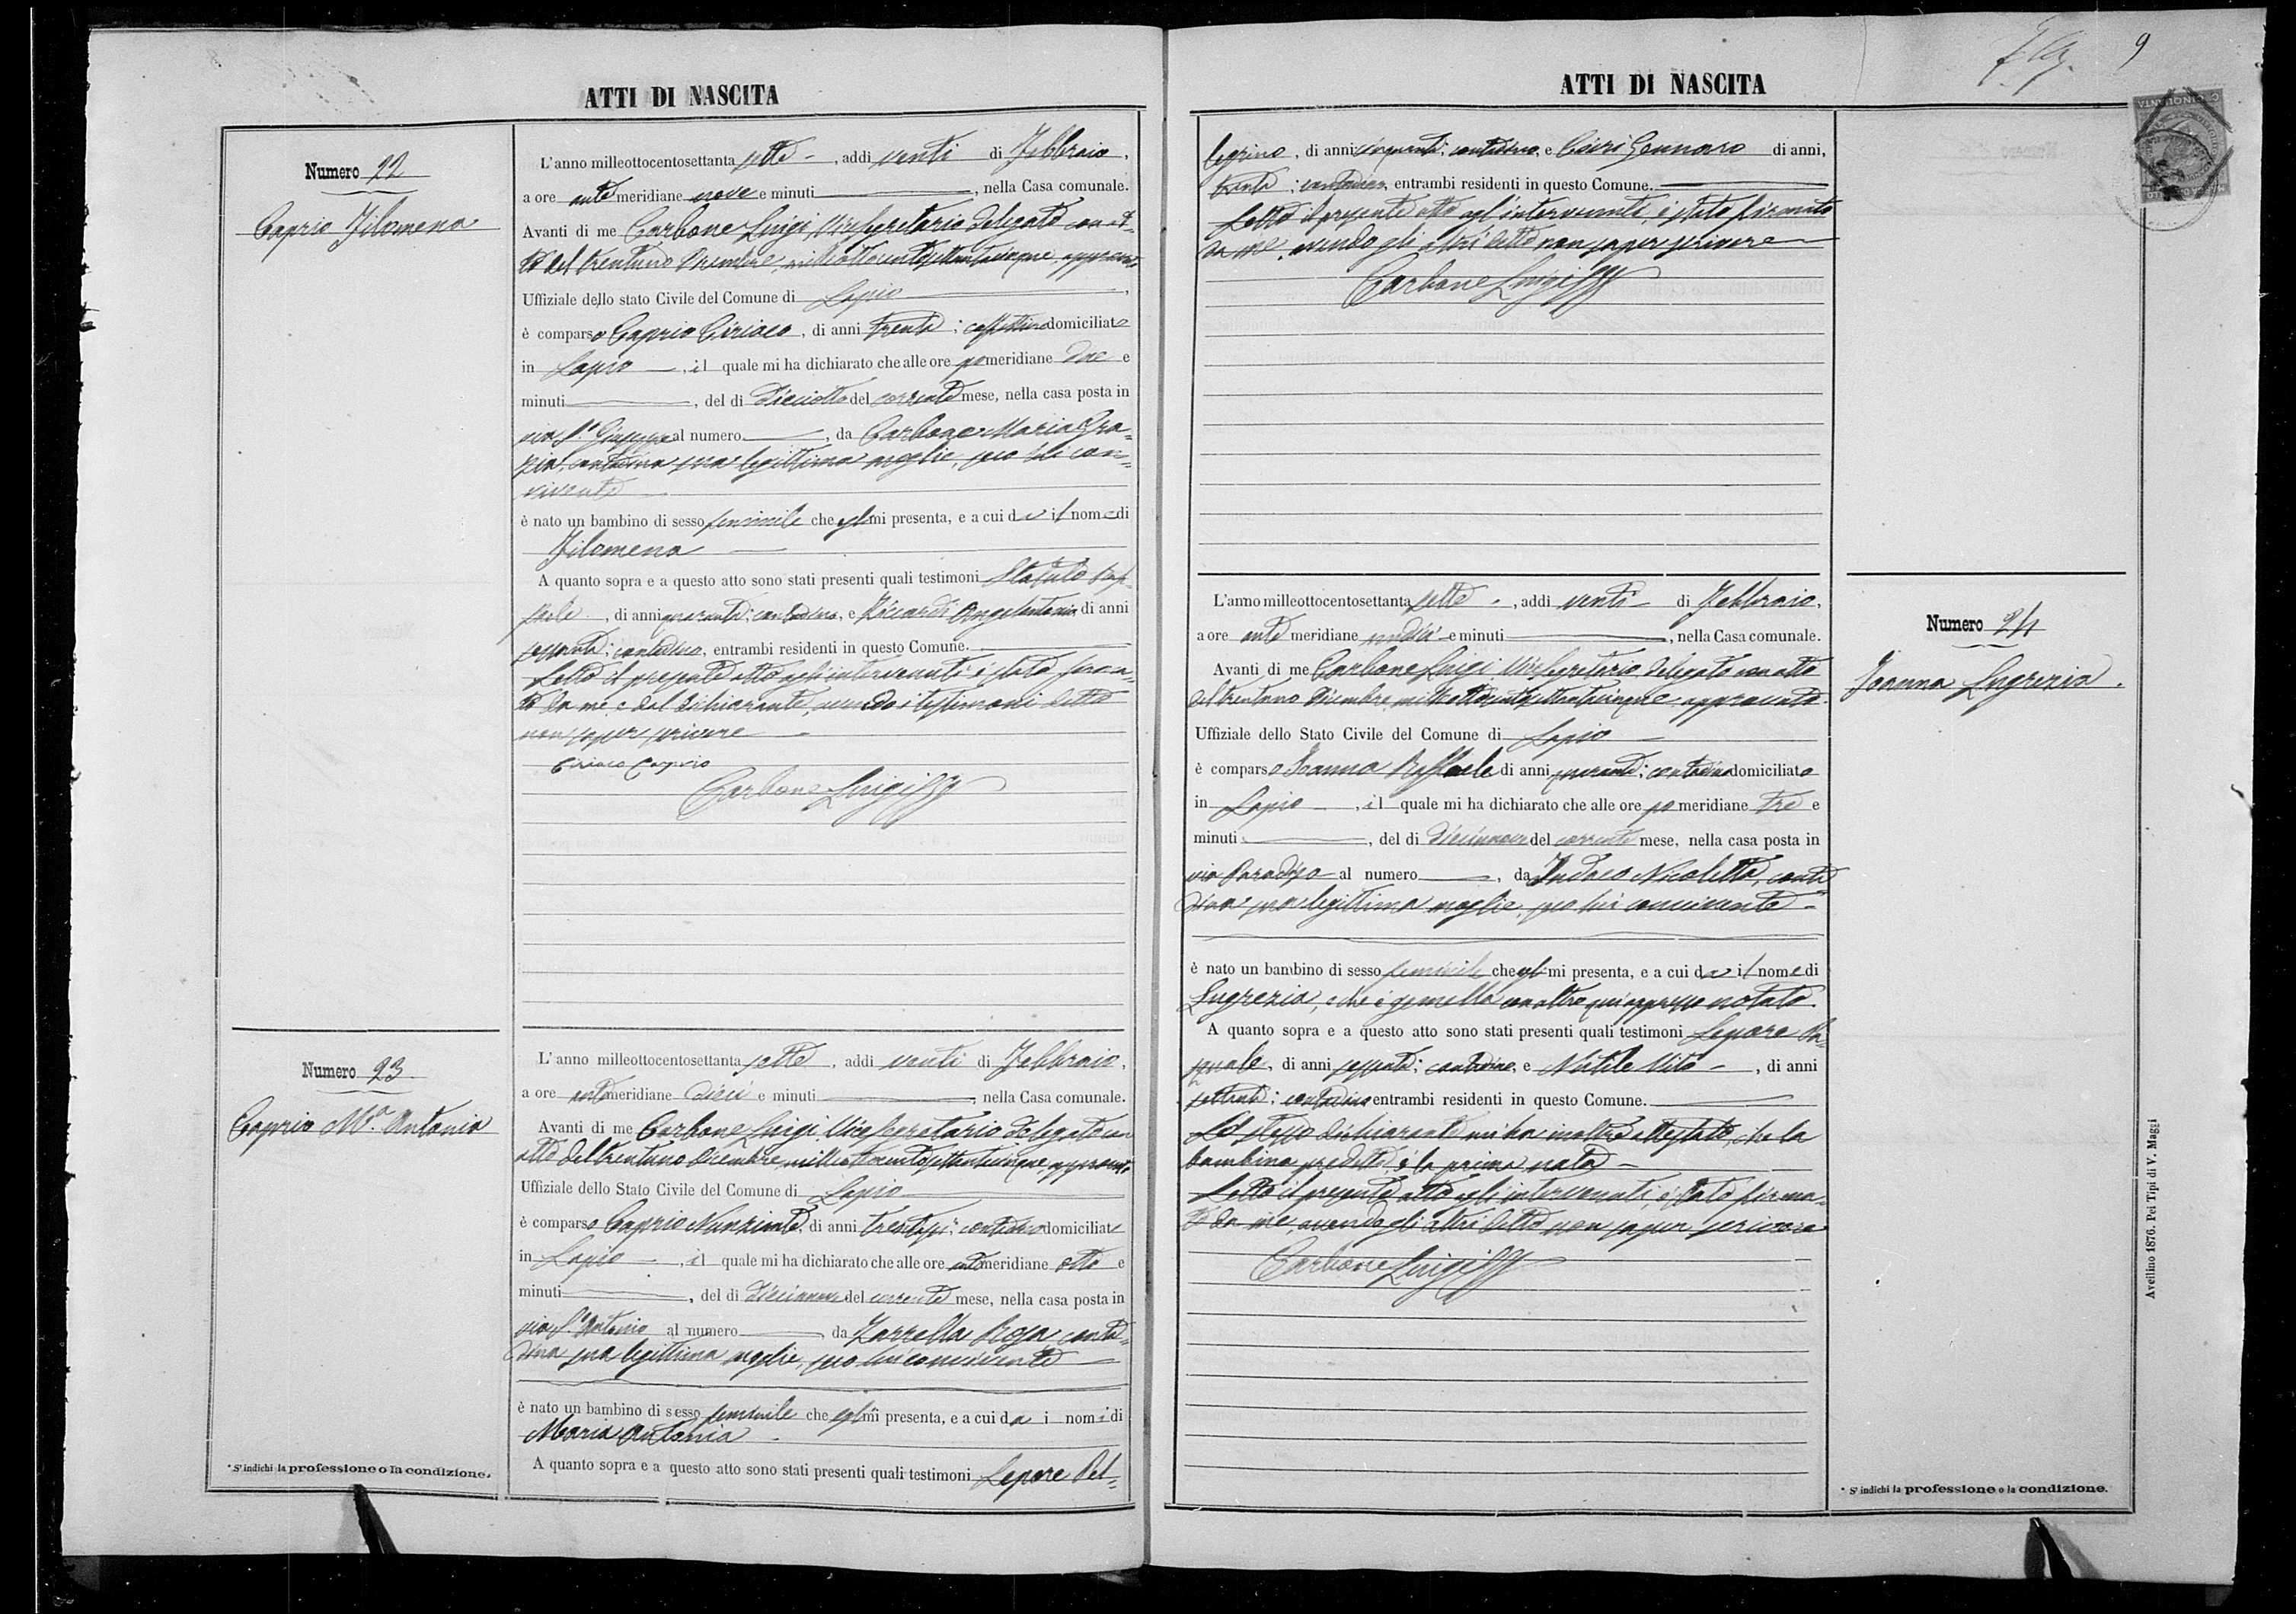 ATTI DI NASCITA
Numero 22
Caprio Filomena
L'anno milleottocentosettanta sette, addì venti di Febbraio,
a ore antimeridiane nove e minuti, nella Casa comunale.
Avanti di me Carbone Luigi, Vicesegretario delegato con at-
to del trentuno Dicembre milleottocentosettantacinque, approvato
Uffiziale dello stato Civile del Comune di Lapio,
è comparso Caprio Ciriaco, di anni trenta; domiciliato
in Lapio, il quale mi ha dichiarato che alle ore pomeridiane due e
minuti, del dì diciotto del corrente mese, nella casa posta in
via S. Giuseppe al numero, da Carbone Maria Gra-
zia, contadina sua legittima moglie, seco lui con-
vivente
è nato un bambino di sesso femminile che egli mi presenta, e a cui da il nome di
Filomena
A quanto sopra e a questo atto sono stati presenti quali testimoni
di anni quaranta; contadino, e Riccardi Angelantonio di anni
sessanta; contadino, entrambi residenti in questo Comune.
Letto il presente atto agli intervenuti è stato firma-
to da me e dal dichiarante, avendo i testimoni detto
non saper scrivere
Ciriaco Caprio
Carbone Luigi
Numero 23
Caprio M.a Antonia
L'anno milleottocentosettanta sette, addì venti di Febbraio,
a ore antimeridiane dieci e minuti, nella Casa comunale.
Avanti di me Carbone Luigi Vicesegretario delegato con
atto del trentuno Dicembre milleottocentosettantacinque, approvato
Uffiziale dello Stato Civile del Comune di Lapio
è comparso Caprio Nunziante, di anni trentasei; contadino domiciliato
in Lapio, il quale mi ha dichiarato che alle ore antimeridiane otto e
minuti, del dì diciannove del corrente mese, nella casa posta in
via S. Antonio al numero da Zarrella Rosa conta-
dina sua legittima moglie, seco lui convivente
è nato un bambino di sesso femminile che egli mi presenta, e a cui da i nomi di
Maria Antonia
A quanto sopra e a questo atto sono stati presenti quali testimoni Lepore Pel-
* S' indichi la professione o la condizione.
9
ATTI DI NASCITA
legrino, di anni cinquanta; contadino, e Ciriaco Gennaro di anni,
trenta; contadino, entrambi residenti in questo Comune.
Letto il presente atto agl'intervenuti, è stato firmato
da me, avendo gli altri detto non saper scrivere
Carbone Luigi
L'anno milleottocentosettanta sette, addì venti di Febbraio,
a ore antimeridiane undici e minuti, nella Casa comunale.
Avanti di me Carbone Luigi Vicesegretario delegato con atto
del trentuno Dicembre milleottocentosettantacinque approvato
Uffiziale dello Stato Civile del Comune di Lapio
è comparso Ioanna Raffaele di anni quaranta; contadino domiciliato
in Lapio, il quale mi ha dichiarato che alle ore pomeridiane tre e
minuti, del dì diciannove del corrente mese, nella casa posta in
via Paradiso al numero, da Indaco Nicoletta, conta
dina sua legittima moglie, seco lui convivente
è nato un bambino di sesso femminile che egli mi presenta, e a cui da il nome di
Lugrezia, e che è gemella con altro qui appresso notato.
A quanto sopra e a questo atto sono stati presenti quali testimoni Lepore Pa-
squale, di anni sessanta; contadino, e Nutile Vito, di anni
settanta; contadino entrambi residenti in questo Comune.
Lo stesso dichiarante mi ha inoltre attestato, che la
bambina predetta è la prima nata
Letto il presente atto agli intervenuti, è stato firma-
to da me, avendo gli altri detto non saper scrivere
Carbone Luigi
Numero 24
Ioanna Lugrezia.
* S' indichi la professione o la condizione.
Avellino 1876. Pei Tipi di V. Maggi